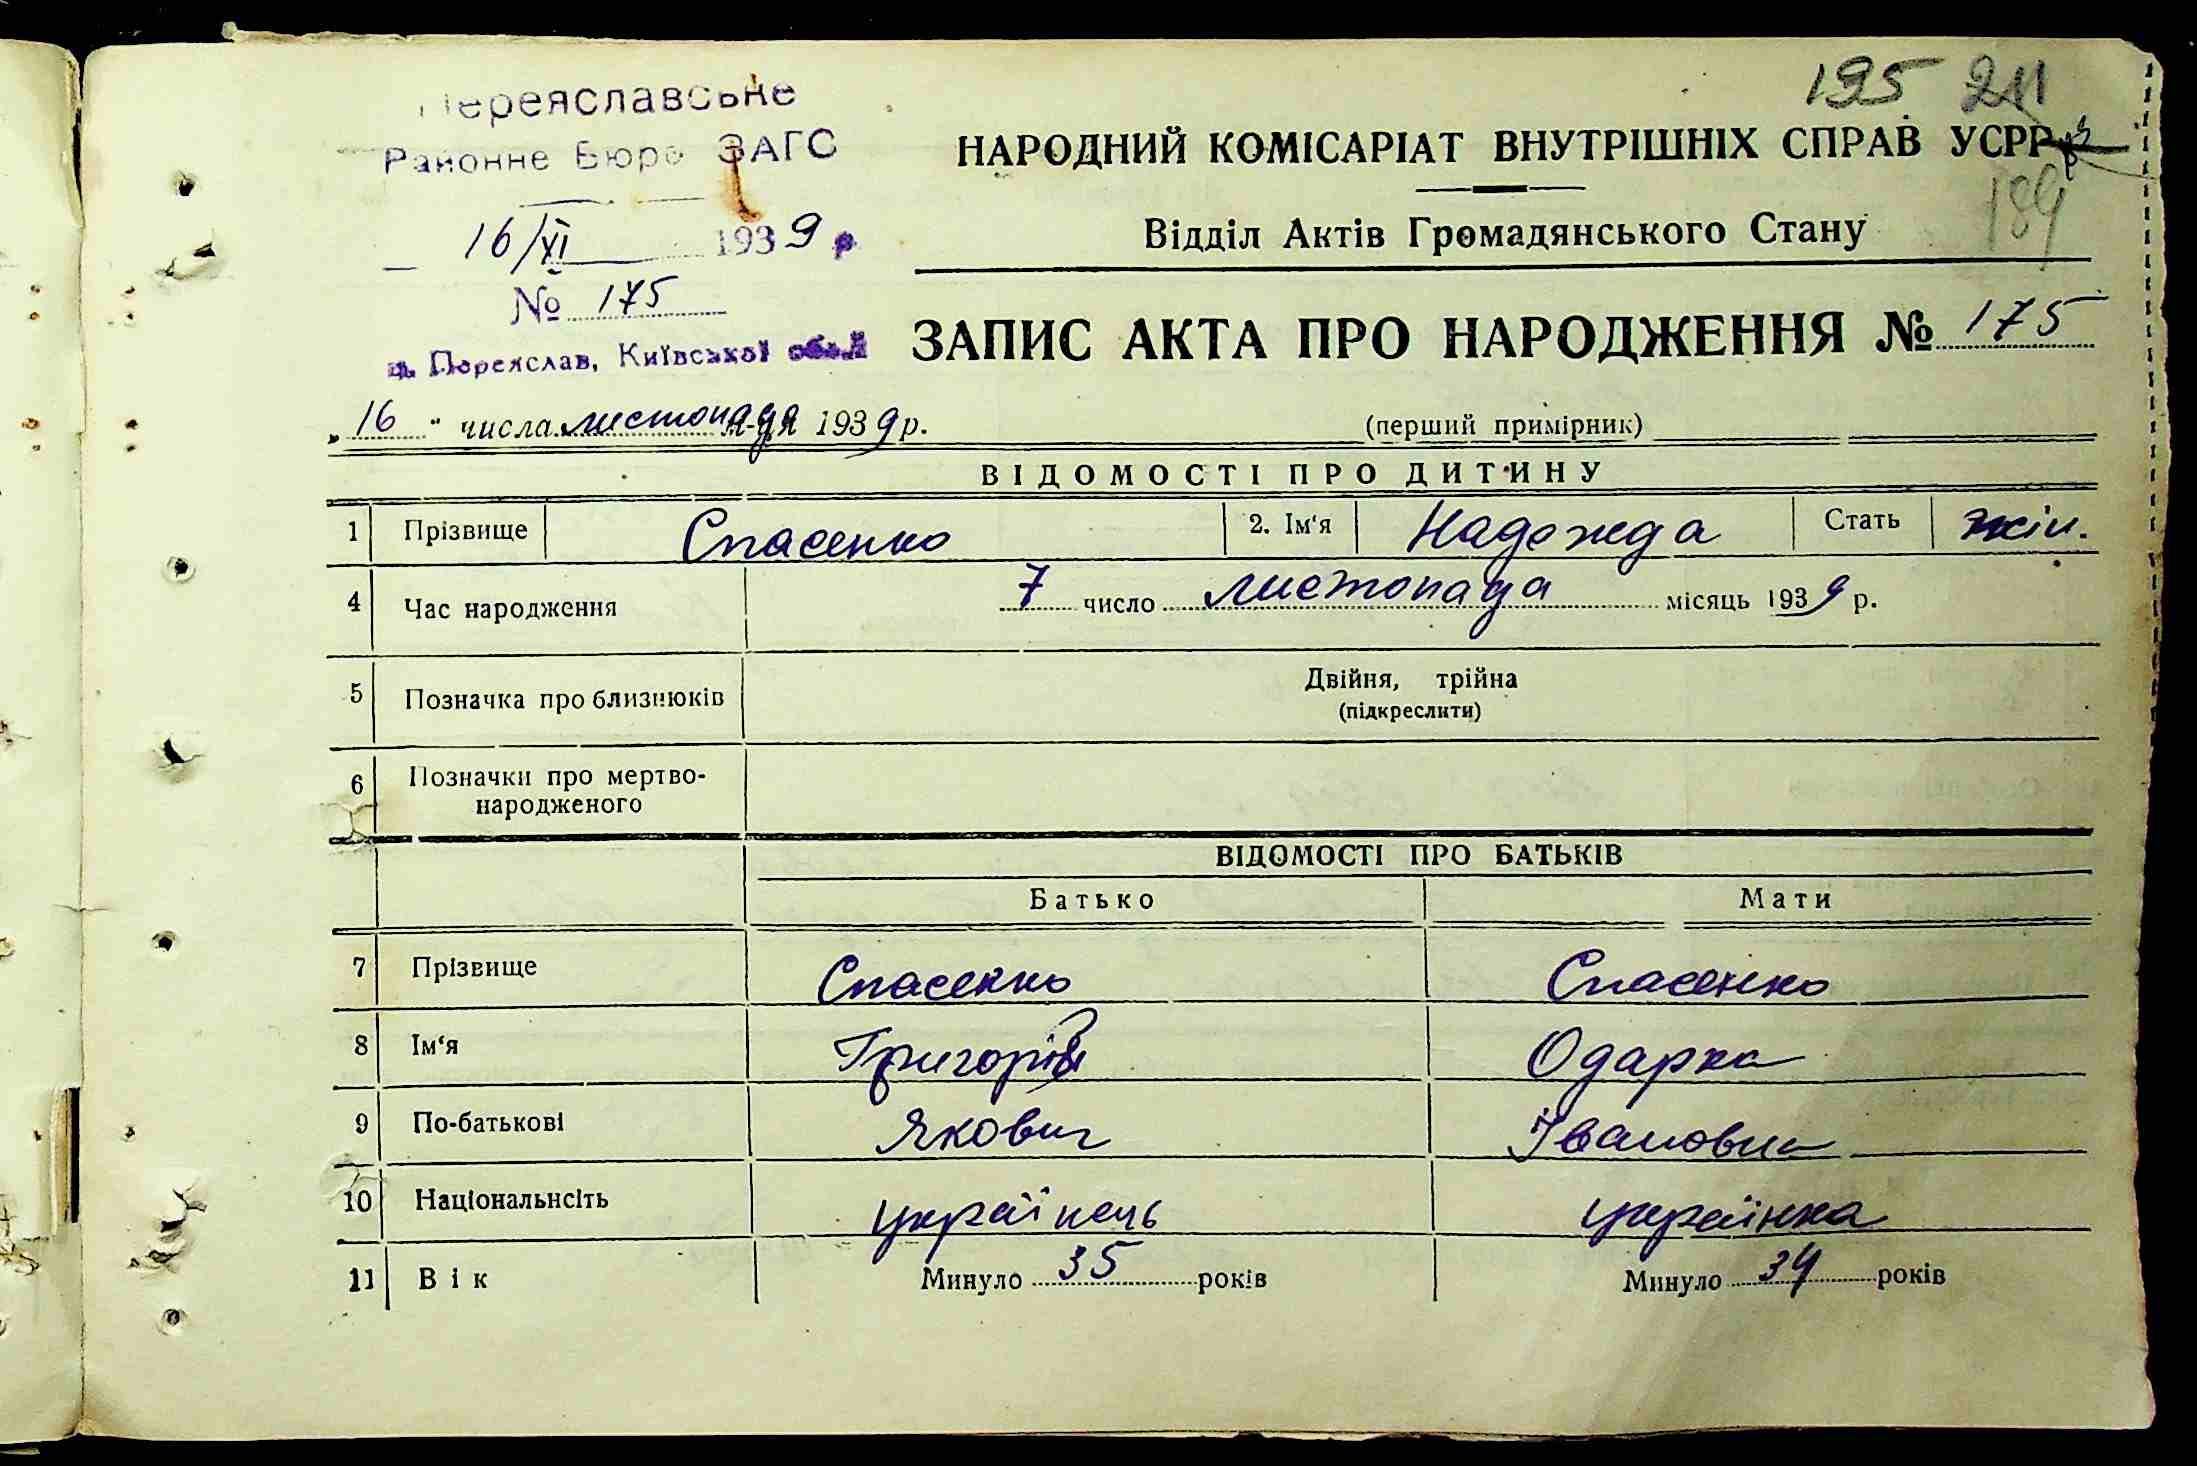 Переяславське
Районне Бюро ЗАГС
16/XI 1939 р
№ 175
м. Переяслав, Київської обл.
195 211
189
НАРОДНИЙ КОМІСАРІАТ ВНУТРІШНІХ СПРАВ УСРР
Відділ Актів Громадянського Стану
ЗАПИС АКТА ПРО НАРОДЖЕННЯ № 175
„16" числа листопада м-ця 1939 р.
(перший примірник)
ВІДОМОСТІ ПРО ДИТИНУ
1 Прізвище Спасенко 2. Ім'я Надежда Стать жін.
4 Час народження 7 число листопада місяць 1939 р.
5 Позначка про близнюків Двійня, трійна
(підкреслити)
6 Позначки про мертво-
народженого
ВІДОМОСТІ ПРО БАТЬКІВ
Батько Мати
7 Прізвище Спасенко Спасенко
8 Ім'я Григорій Одарка
9 По-батькові Якович Івановна
10 Національнсіть українець українка
11 Вік Минуло 35 років Минуло 34 років